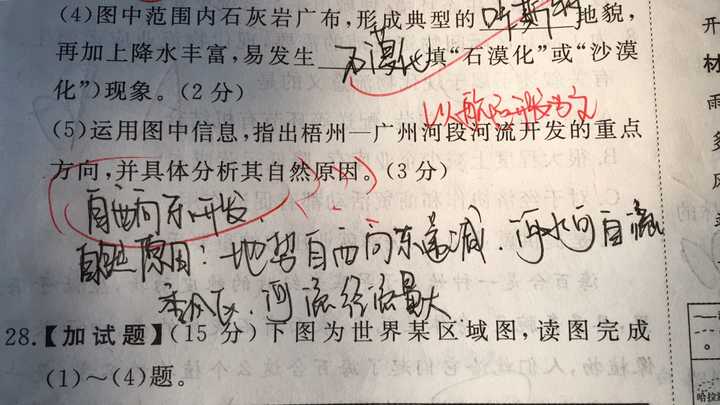 (4)图中范围内石灰岩广布,形成典型的 喀斯特 地貌,
再加上降水丰富,易发生 石漠化 填“石漠化”或“沙漠
化”)现象。(2分)
以航运开发为主
(5)运用图中信息,指出梧州—广州河段河流开发的重点
方向,并具体分析其自然原因。(3分)
自西向东开发
自然原因:地势自西向东递减.河水
河流径流量大
28.【加试题】(15分)下图为世界某区域图,读图完成
(1)~(4)题。